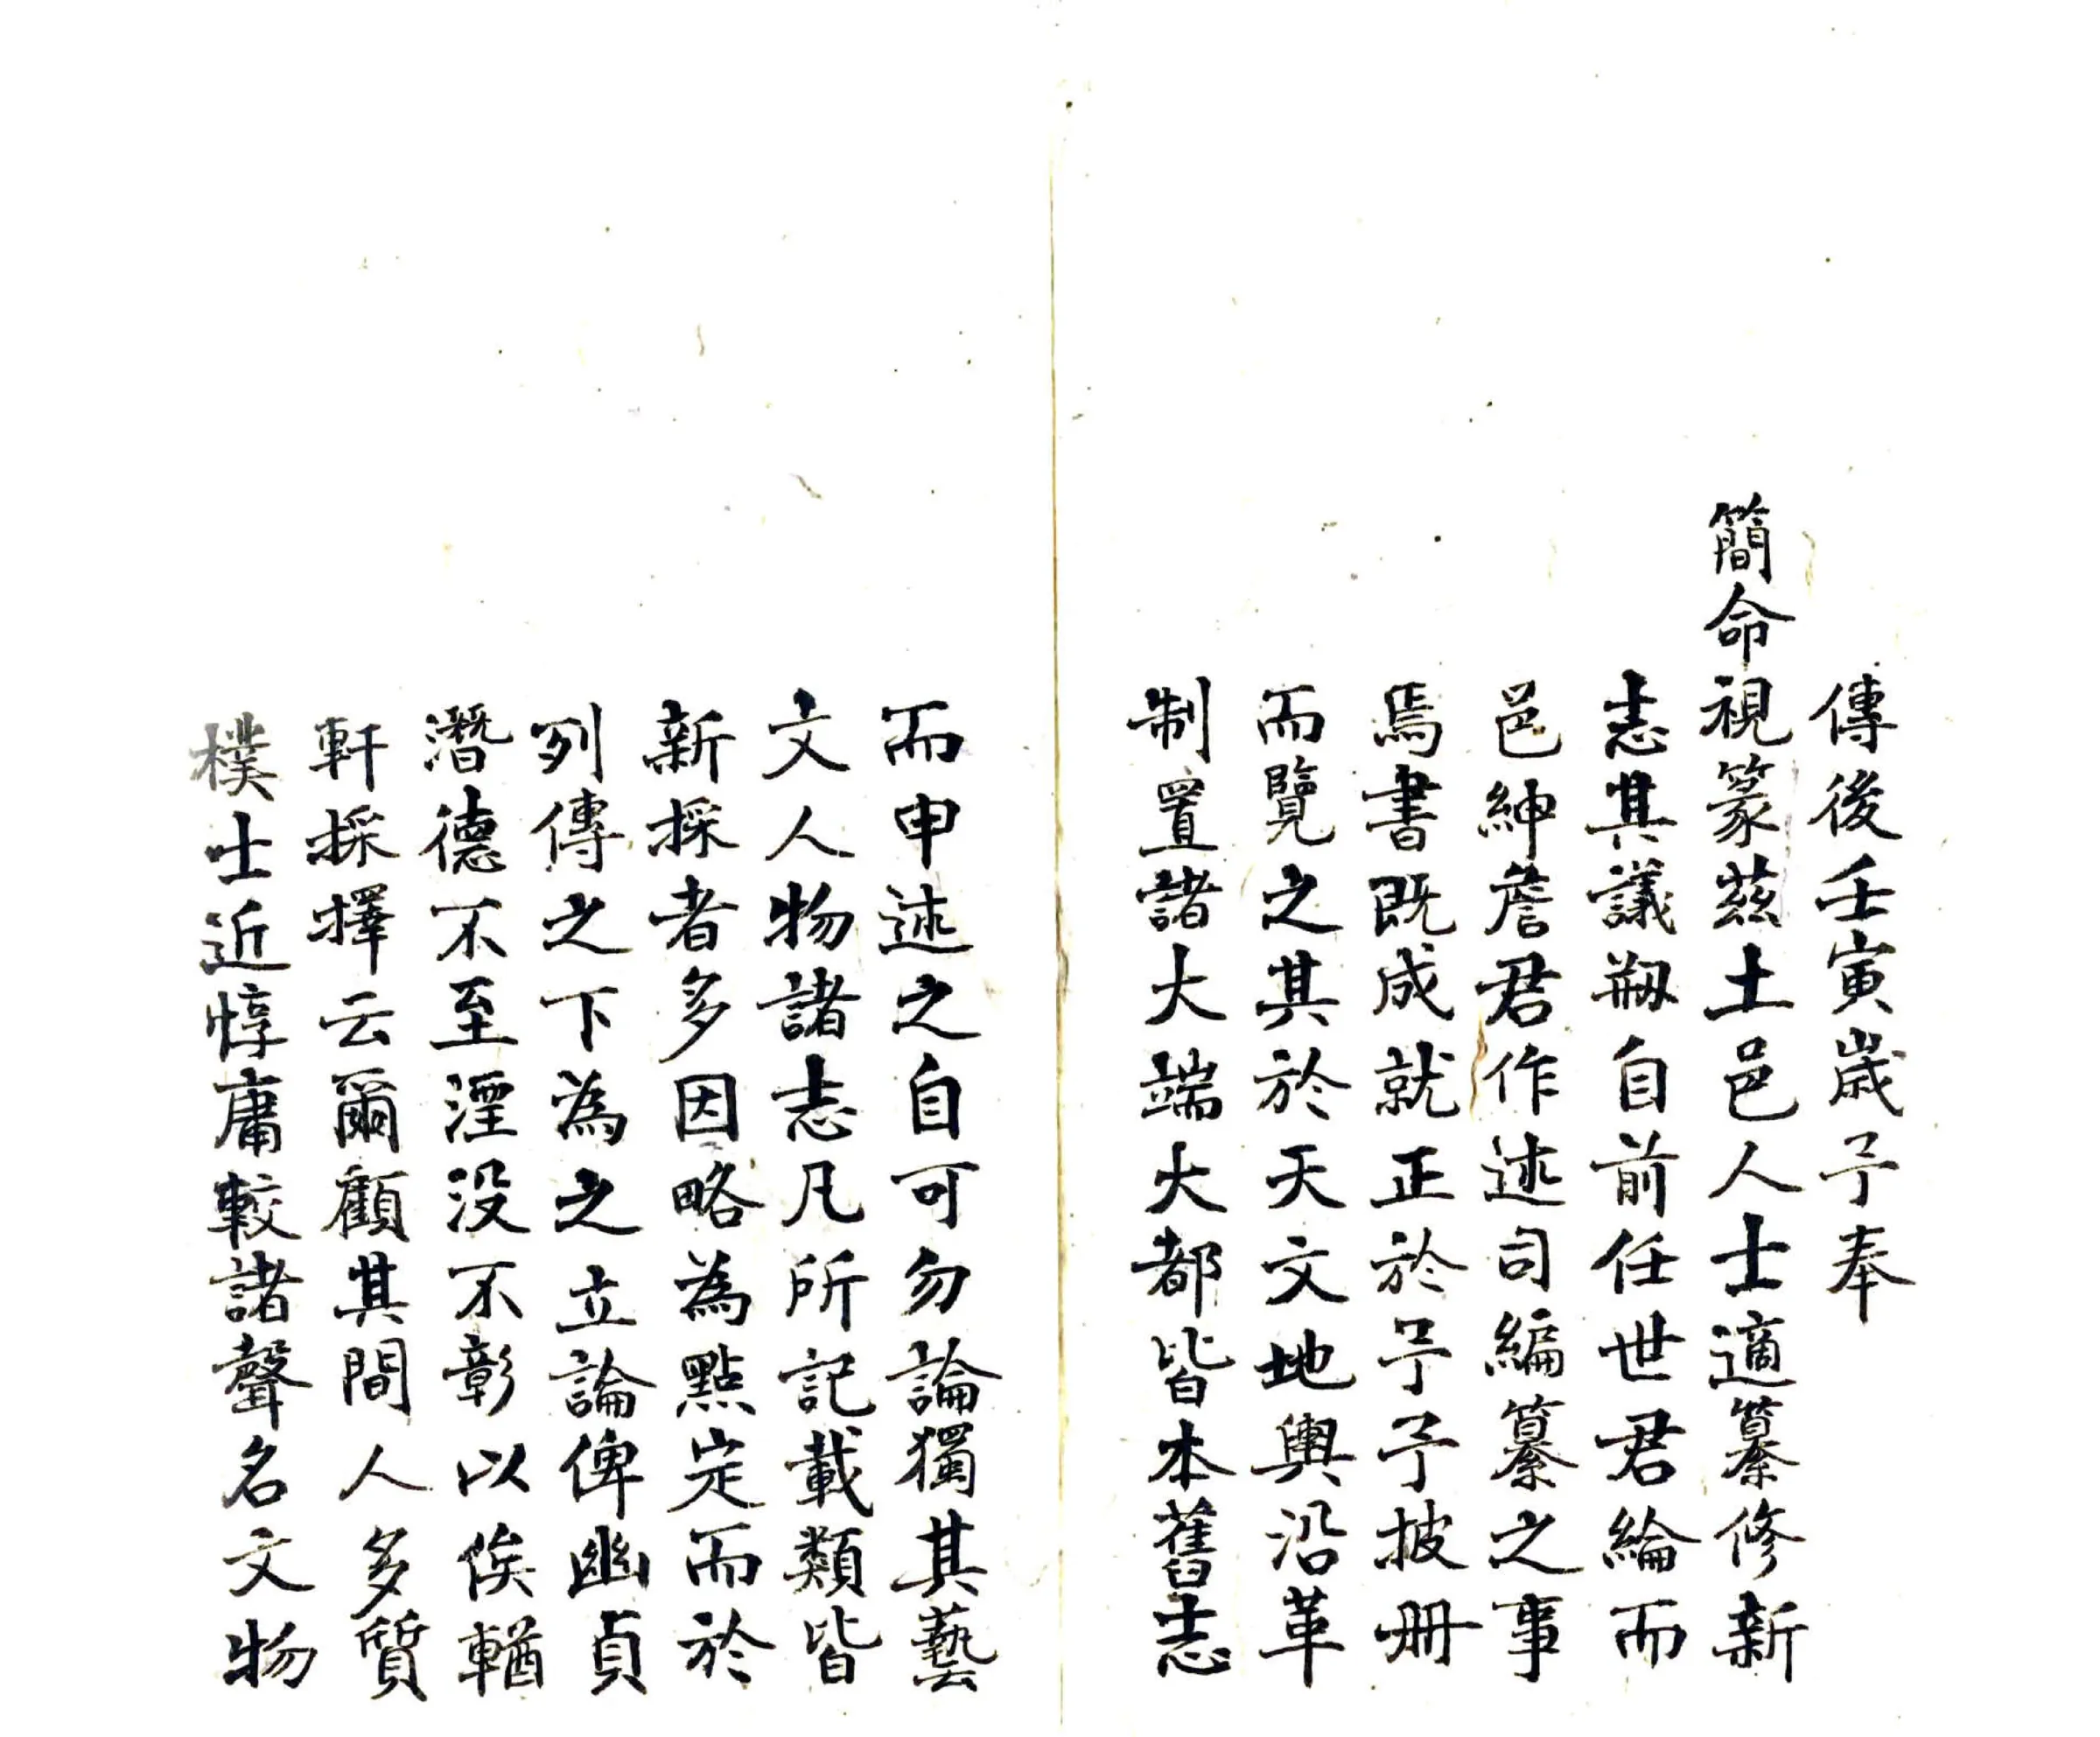 傳後壬寅歲予奉
簡命視篆茲土邑人士適纂修新
志其議剏自前任世君綸而
邑紳詹君作述司編纂之事
焉書既成就正於予予披冊
而覽之其於天文地輿沿革
制置諸大端大都皆本舊志
而申述之自可勿論獨其藝
文人物諸志凡所記載類皆
新採者多因略為點定而於
列傳之下為之立論俾幽貞
潛德不至湮没不彰以俟輶
軒採擇云爾顧其間人多質
樸士近惇庸較諸聲名文物